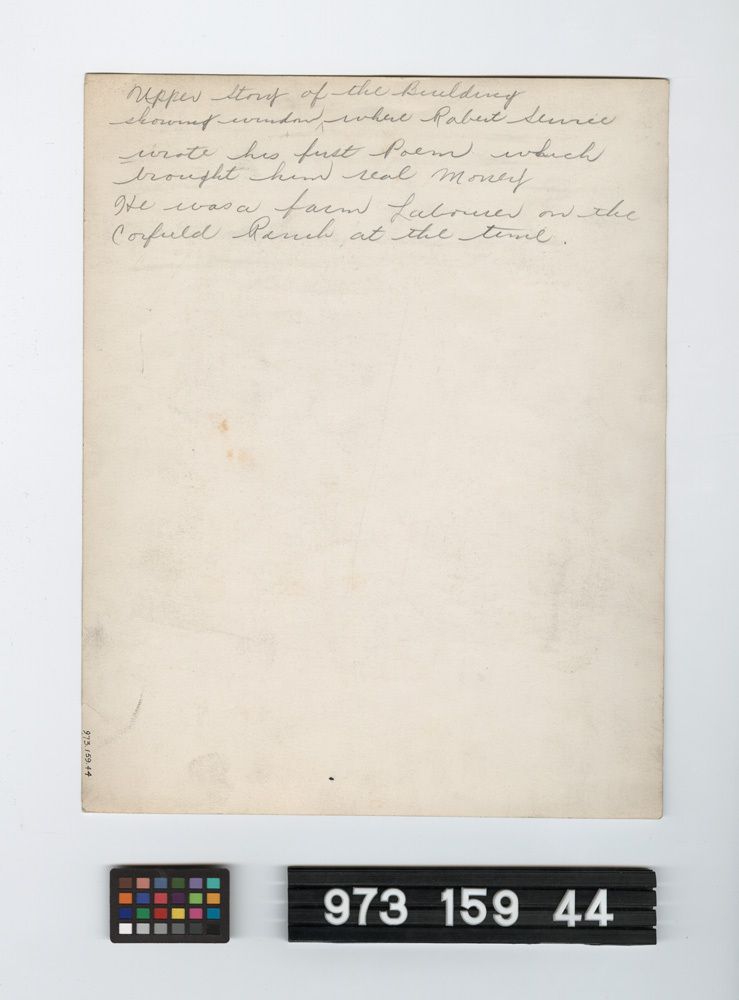 Upper Story of the Building
showing window, where Robert Service
wrote his first Poem which
brought him real Money
He was a farm Labourer on the
Corfield Ranch at the time.
973.159.44
973 159 44